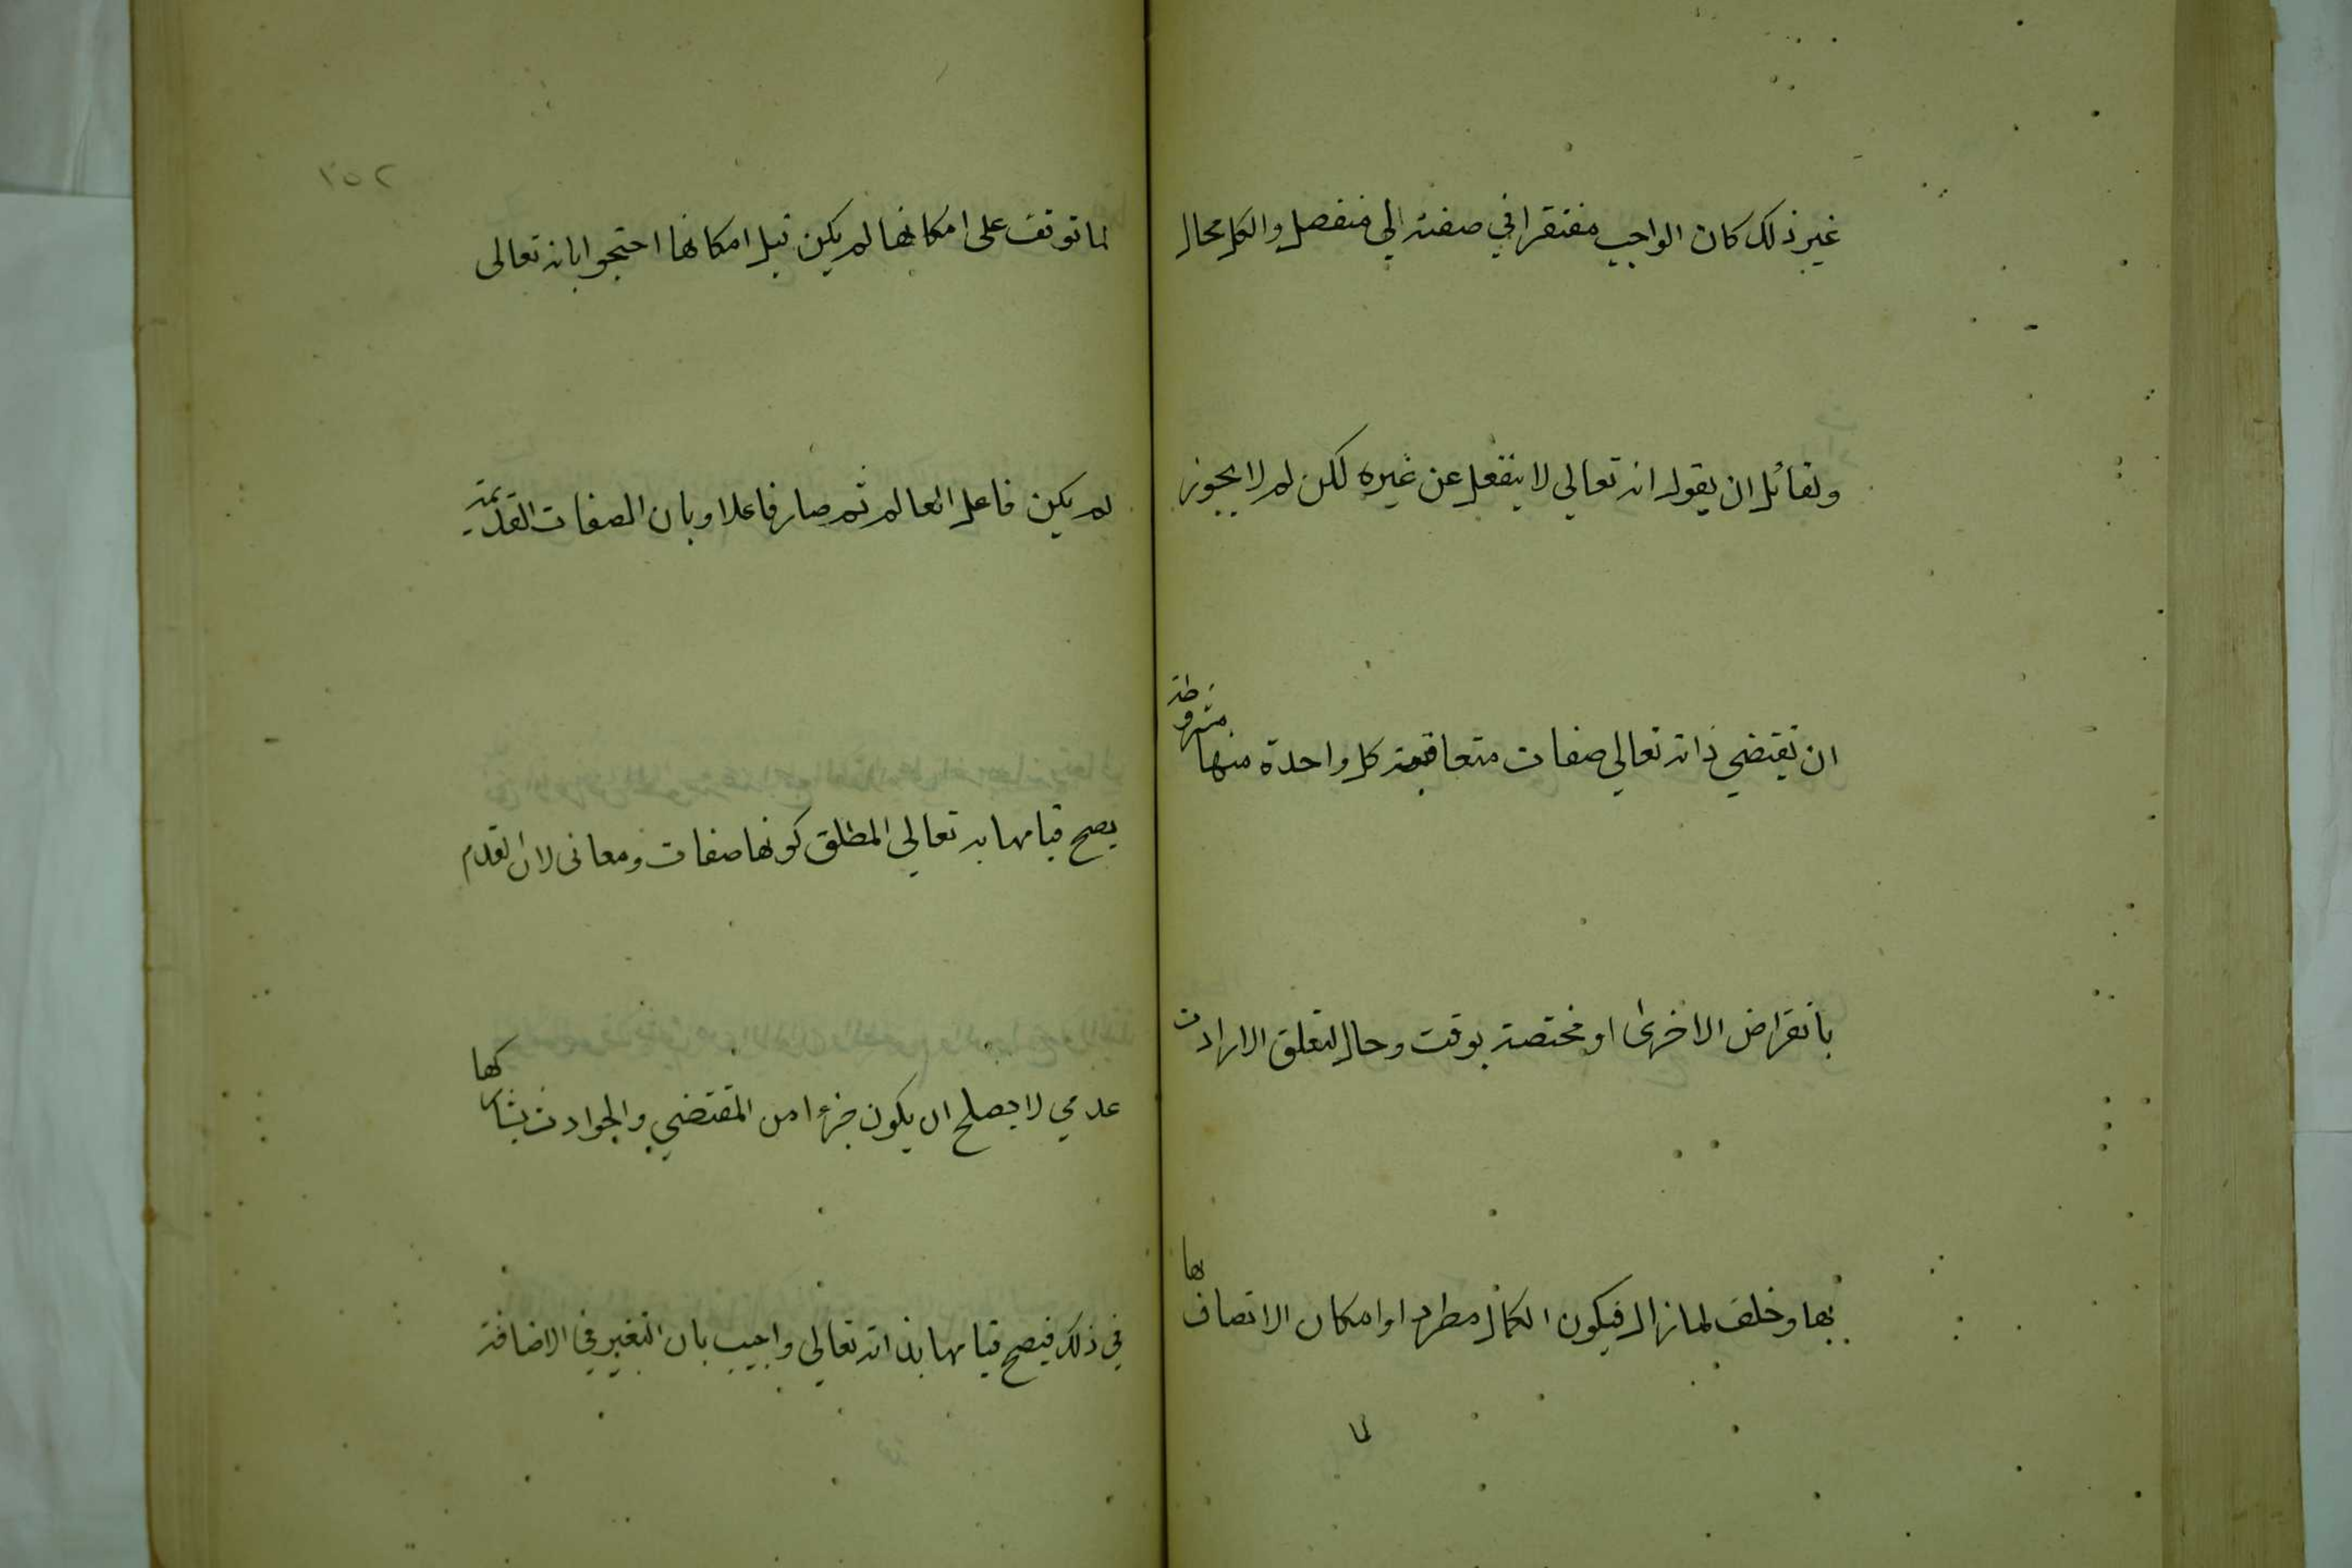 غير ذلك كان الواجب مفتقرا في صفته الي منفصل والكل محال
ولقائل ان يقول انه تعالي لا ينفعل عن غيره لكن لم لا يجوز
ان تقتضي ذاته تعالي صفات متعاقبة كل واحدة منها مشروطة
بانقراض الاخرى او مختصة بوقت وحال لتعلق الارادة
بها وخلف لما زال فيكون الكمال مطردا وامكان الاتصاف بها
لما
٢٥٢
لما توقف على امكانها لم يكن قبل امكانها احتجوا بانه تعالى
لم يكن فاعل العالم ثم صار فاعلا وبان الصفات القديمة
يصح قيامها به تعالي لمطلق كونها صفات ومعانى لان القدم
عدمي لا يصلح ان يكون جزءا من المقتضي والحوادث يشاركها
في ذلك فيصح قيامها بذاته تعالي واجيب بان التغير في الاضافة